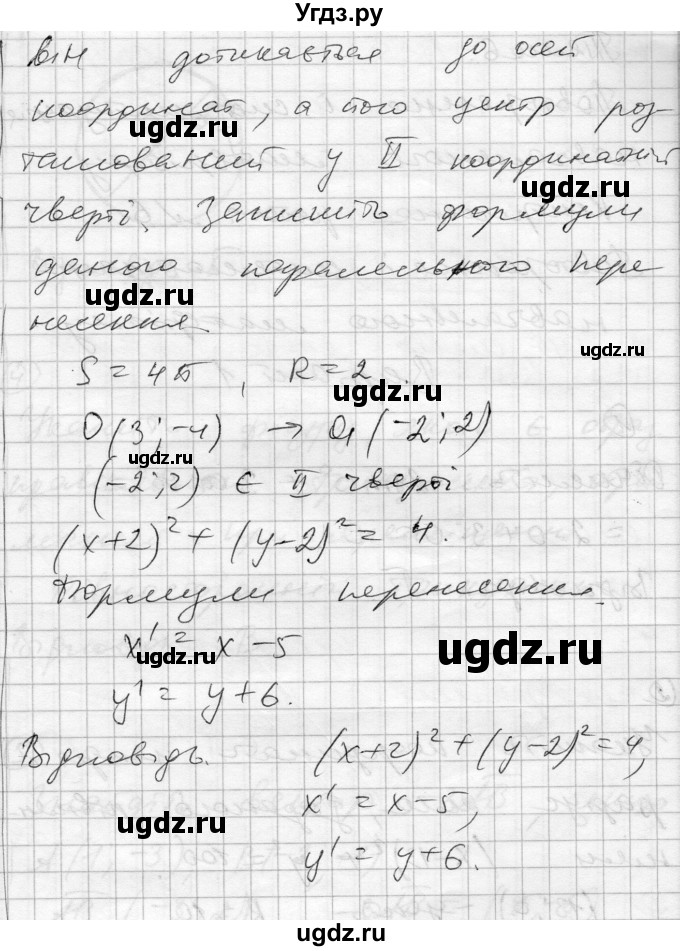 Угдз.ру
він дотикається до осей
координат, а його центр роз-
ташований у II координатній
чверті. Запишіть формули
даного паралельного пере
несення.
S = 4π, R = 2
O(3; -4) → O₁(-2; 2)
(-2; 2) ∈ II чверті
(x+2)² + (y-2)² = 4.
Формули перенесення.
x' = x - 5
y' = y + 6.
Відповідь. (x+2)² + (y-2)² = 4,
x' = x - 5,
y' = y + 6.
ugdz.ru
ugdz.ru
ugdz.ru
ugdz.ru
ugdz.ru
ugdz.ru
ugdz.ru
ugdz.ru
ugdz.ru